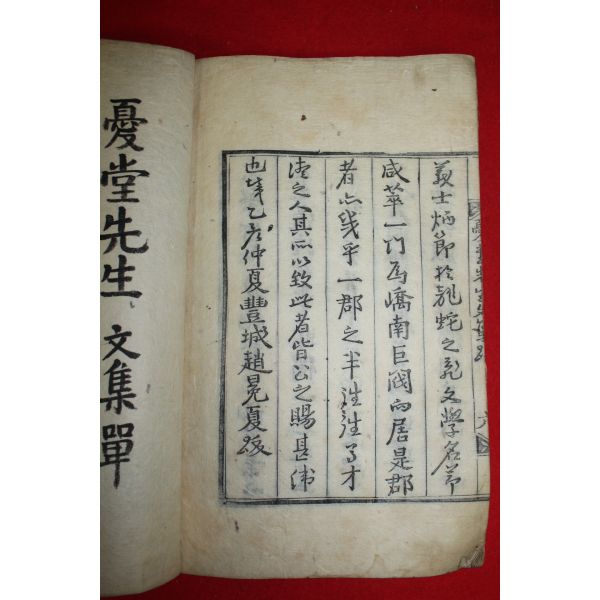 義士炳節於龍蛇之亂文學名節
咸萃一門爲嶠南巨閥而居是郡
者亦幾乎一郡之半往往多才
之人其所以致此者皆公之賜甚
也 乙 仲夏豐城趙冕夏跋
憂堂先生文集單